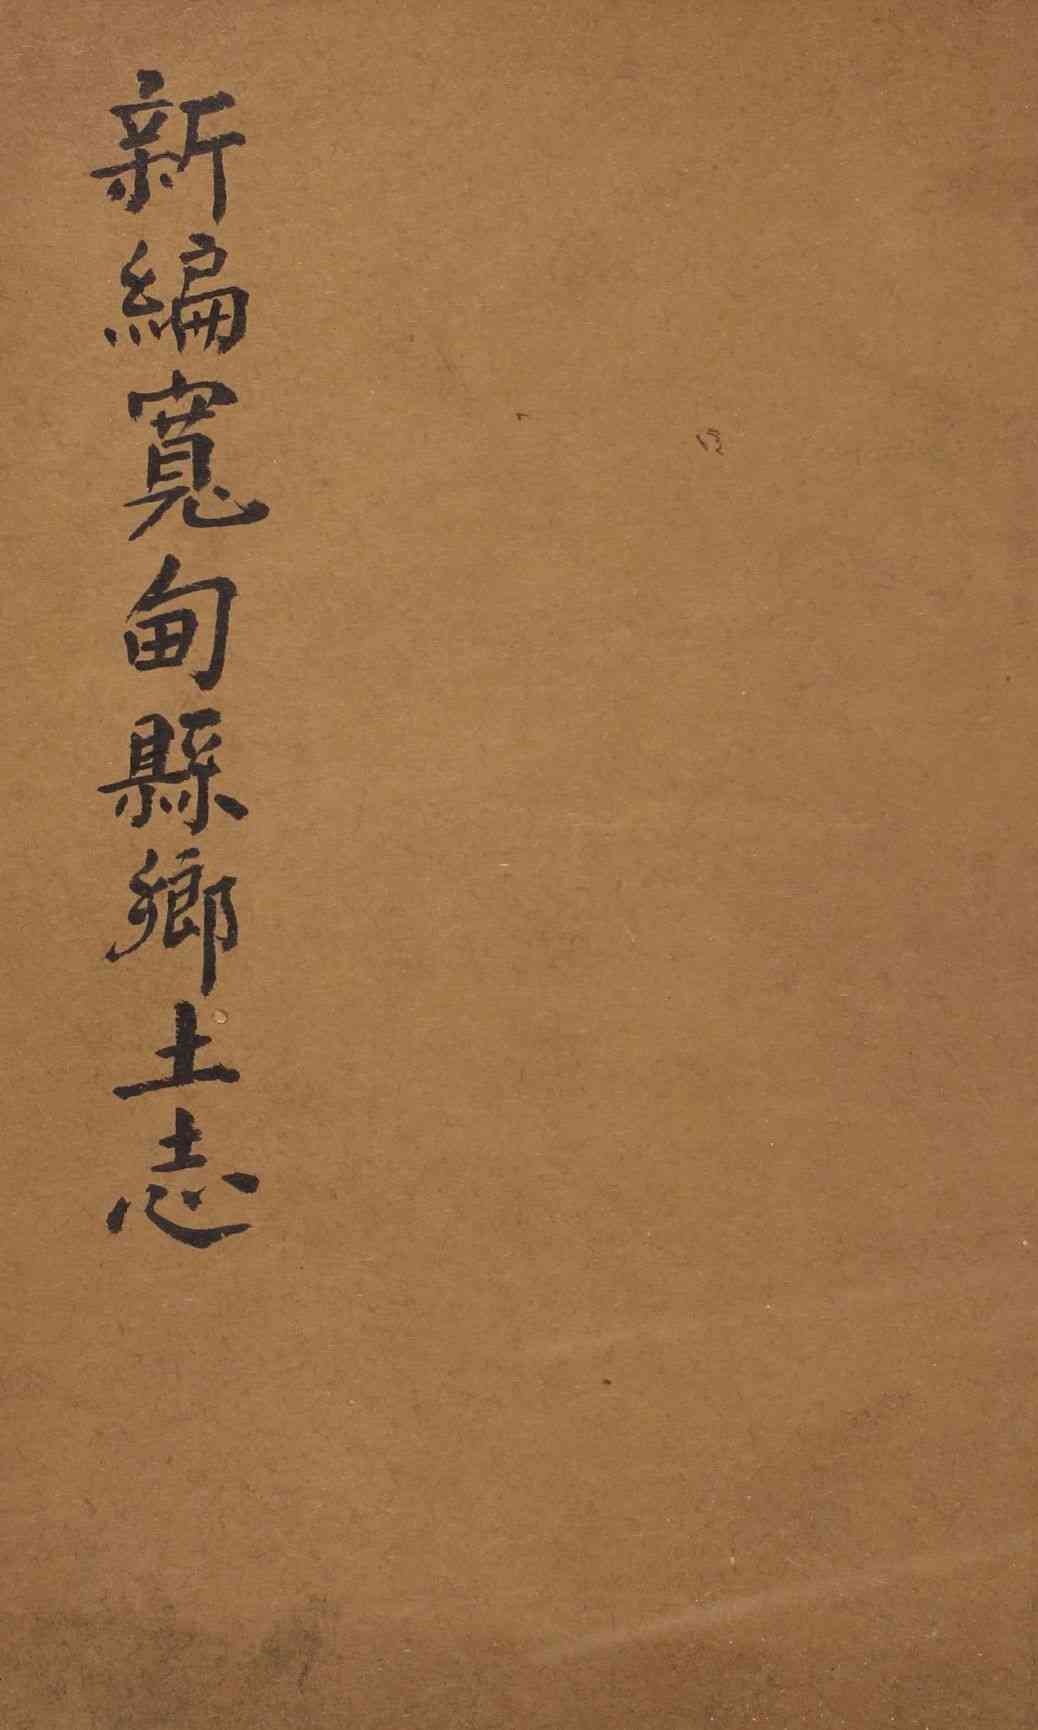 新編寬甸縣鄉土志